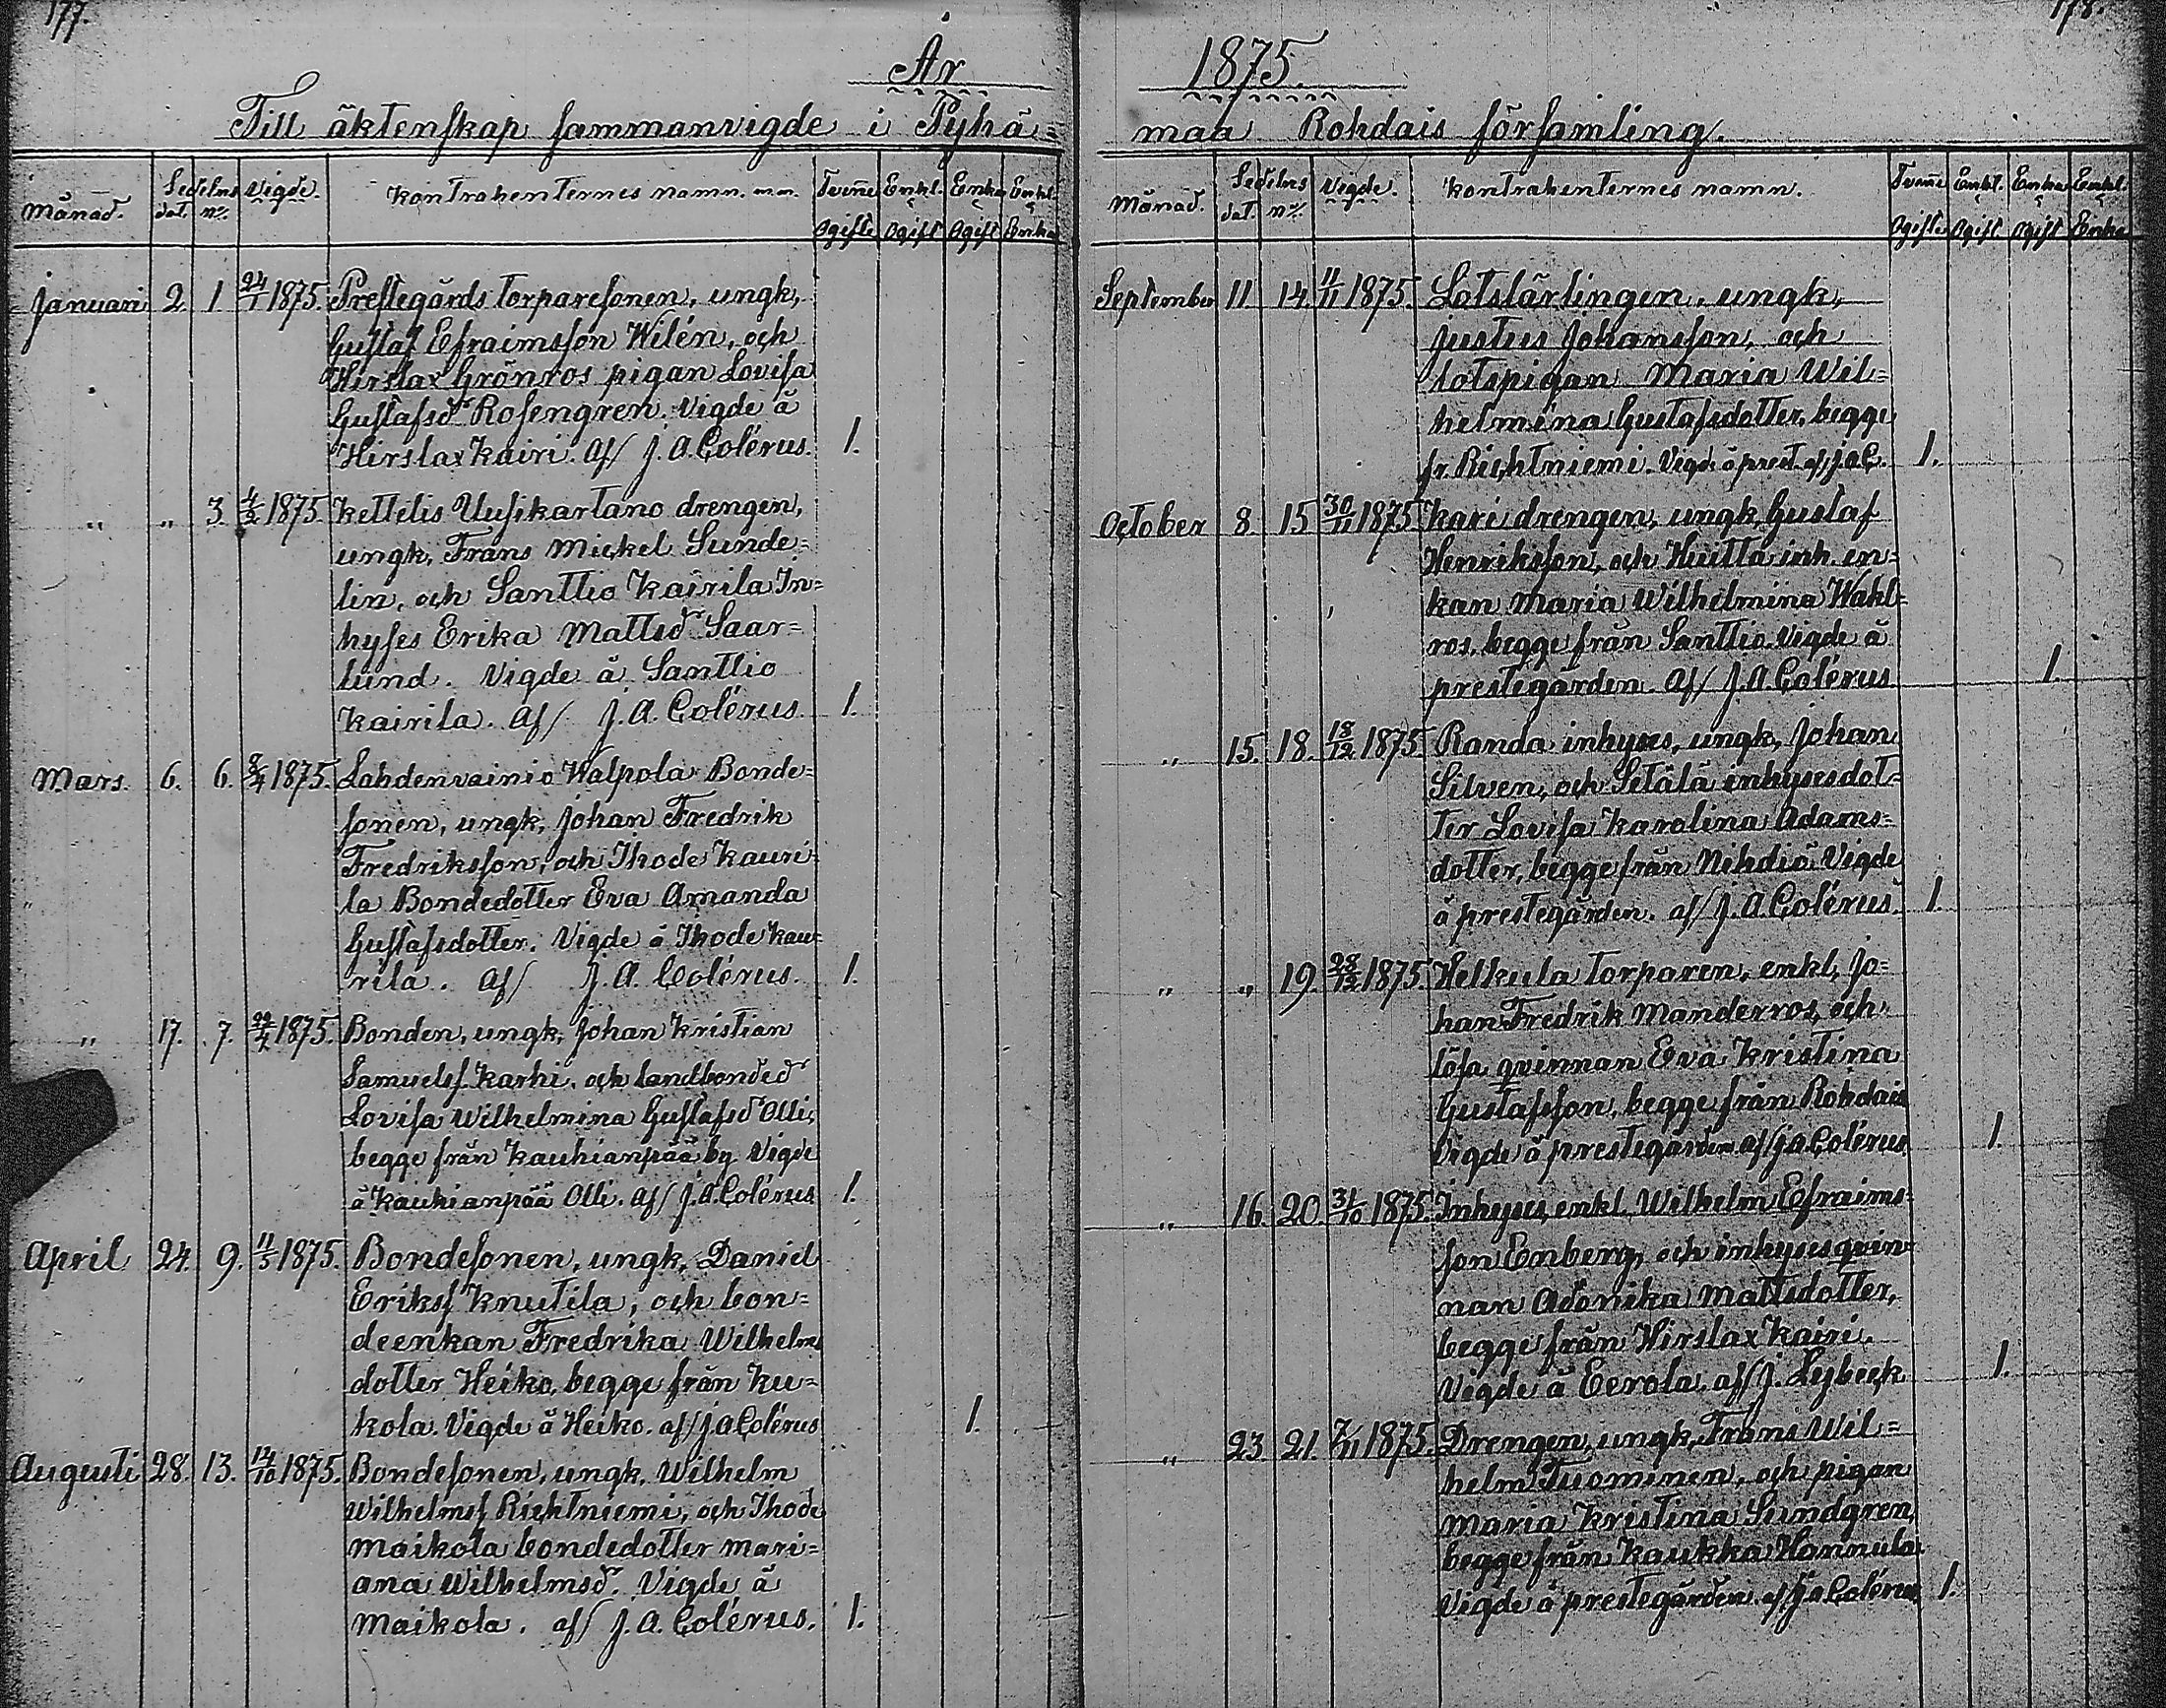 177.
År
Till äktenskap sammanvigde i Pyhä=
Månad. Sedelns dat. no. Vigde. Kontrahenternes namn. Tvenne Ogifte Enkl. o Ogift Enka o Ogift Enkl. o Enka
Januari 2. 1. 24/1 1875. Prestegårds torparesonen, ungk,
Gustaf Efraimsson Wilén, och
Hirslax Grönros pigan Lovisa
Gustafsdr Rosengren. Vigde å
Hirslax Kairi. af/ J. A. Colérus. 1.
" " 3. 4/2 1875. Kettelis Uusikartano drengen,
ungk, Frans Mickel Sunde=
lin, och Santtio Kairila In=
hyses Erika Mattsdr Saar=
lund. Vigde å Santtio
Kairila. af/ J. A. Colérus. 1.
Mars. 6. 6. 8/4 1875. Lahdenvainio Walpola Bonde=
sonen, ungk, Johan Fredrik
Fredriksson, och Ihode Kauri=
la Bondedotter Eva Amanda
Gustafsdotter. Vigde å Ihode Kau=
rila. af/ J. A. Colérus. 1.
" 17. 7. 22/4 1875. Bonden, ungk, Johan Kristian
Samuelss. Karhi, och landbondedr
Lovisa Wilhelmina Gustafsdr Olli,
begge från Kauhianpää by. Vigde
å Kauhianpää Olli. af/ J. A. Colérus 1.
April 24. 9. 11/5 1875. Bondesonen, ungk, Daniel
Erikss. Knutila, och bon=
deenkan Fredrika Wilhelms
dotter Heiko, begge från Ku=
kola. Vigde å Heiko. af/ J. A. Colérus 1.
Augusti 28. 13. 14/10 1875. Bondesonen, ungk, Wilhelm
Wilhelmss. Richtniemi, och Ihode
Maikola bondedotter Mari=
ana Wilhelmsdr. Vigde å
Maikola. af/ J. A. Colérus. 1.
178.
1875.
maa Rohdais församling.
Månad. Sedelns dat. no. Vigde. Kontrahenternes namn. Tvenne Ogifte Enkl. o Ogift Enka o Ogift Enkl. o Enka
September 11. 14. 11/11 1875. Lotslärlingen, ungk,
Justus Johansson, och
lotspigan Maria Wil=
helmina Gustafsdotter, begge
fr. Richtniemi. Vigde å prest. af/ J. A. C. 1.
October 8. 15 30/11 1875. Kari drengen, ungk, Gustaf
Henriksson, och Hutta inh. en=
kan Maria Wilhelmina Wahl=
ros, begge från Santtio. Vigde å
prestegården. af/ J. A. Colérus 1.
" 15. 18. 18/12 1875. Randa inhyses, ungk, Johan
Silven, och Setälä inhysesdot=
ter Lovisa Karolina Adams=
dotter, begge från Nihdiö. Vigde
å prestegården. af/ J. A. Colérus. 1.
" " 19. 28/12 1875. Helkula torparen, enkl, Jo=
han Fredrik Manderros, och
lösa qvinnan Eva Kristina
Gustafsson, begge från Rohdais
Vigde å prestegården af/ J A Colérus 1.
" 16. 20. 31/10 1875. Inhyses, enkl. Wilhelm Efraims=
son Enberg, och inhysesqvin=
nan Adonika Mattsdotter,
begge från Hirslax Kairi.
Vigde å Eerola. af/ J. Lejbeck 1.
" 23. 21. 7/11 1875. Drengen, ungk, Frans Wil=
helm Tuominen, och pigan
Maria Kristina Sundgren,
begge från Kaukka Hannula
Vigde å prestegården. af/ J A Colérus 1.